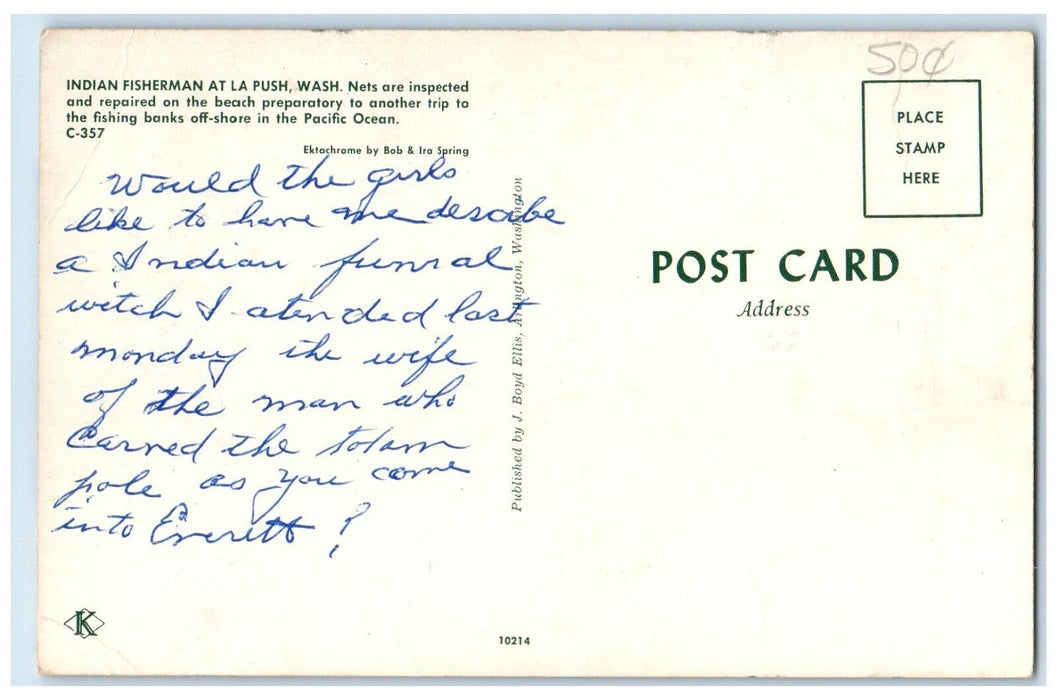 50¢
INDIAN FISHERMAN AT LA PUSH, WASH. Nets are inspected
and repaired on the beach preparatory to another trip to
the fishing banks off-shore in the Pacific Ocean.
C-357
Ektachrome by Bob & Ira Spring
Would the girls
like to have me describe
a Indian funral
witch I atended last
monday the wife
of the man who
Carved the totam
pole as you come
into Everett?
Published by J. Boyd Ellis, Arlington, Washington
PLACE
STAMP
HERE
POST CARD
Address
K
10214